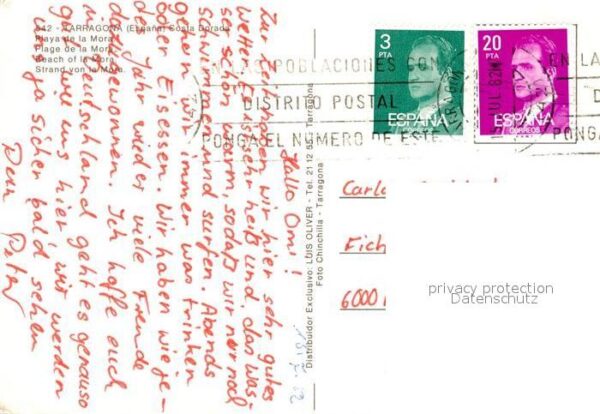 542 - TARRAGONA (España) Costa Dorada
Playa de la Mora
Plage de la Mora
Beach of la Mora
Strand von la Mora
Hallo Omi!
Zur Zeit haben wir hier sehr gutes
Wetter. Es ist sehr heiß und das Was-
ser schön warm, sodaß wir nur noch
schwimmen und surfen. Abends
gehen wir immer was trinken
oder Eisessen. Wir haben wie je-
des Jahr wieder viele Freunde
dazugewonnen. Ich hoffe euch
in Deutschland geht es genauso
gut wie uns hier. Wir werden
uns ja sicher bald sehen
Dein Peter
Distribuidor Exclusivo: LUIS OLIVER - Tel. 21 12 55 - Tarragona
Foto Chinchilla - Tarragona
3
PTA
ESPAÑA
CORREOS
20
PTA
ESPAÑA
CORREOS
EN LAS POBLACIONES CON
DISTRITO POSTAL
PONGA EL NUMERO DE ESTE
JUL 82
EN LA
D
PONGA
Carl
Fich
6000
privacy protection
Datenschutz